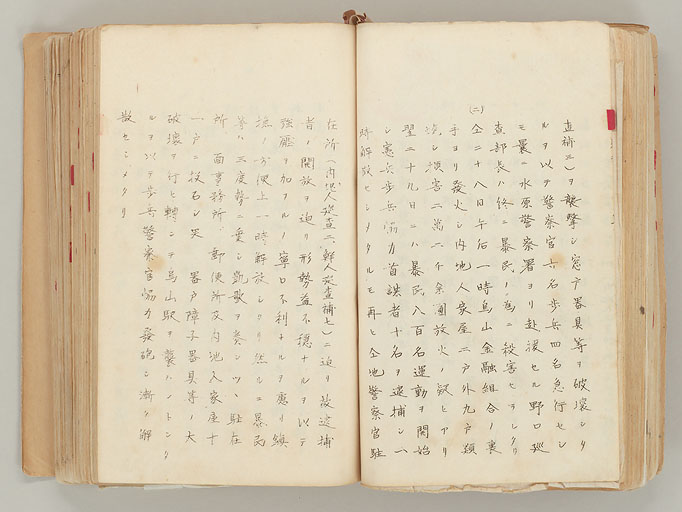 査補三)ヲ襲撃シ窓戸器具等ヲ破壊シタ
ルヲ以テ警察官六名歩兵四名急行セシ
モ曩ニ水原警察署ヨリ赴援セル野口巡
査部長ハ終ニ暴民ノ為ニ殺害セラレタリ
(二)
仝二十八日午后一時烏山金融組合ノ裏
手ヨリ発火シ内地人家屋二戸外九戸類
焼シ損害二萬二千余圓放火ノ疑ヒアリ
翌二十九日ニハ暴民八百名運動ヲ開始
シ憲兵歩兵協力首謀者十名ヲ逮捕シ一
時解散セシメタルモ再ヒ仝地警察官駐
在所(内地人巡査二、鮮人巡査補七)ニ迫リ被逮捕
者ノ開放ヲ迫リ形勢益不穏ナルヲ以テ
強圧ヲ加フルノ寧ロ不利ナルヲ慮リ
方便上一時解放シタリ然ルニ暴民
等ハ三度勢ニ乗シ凱歌ヲ奏シツヽ駐在
所面事務所、郵便所及内地人家屋十
一戸ニ投石シ器戸障子器具等ノ大
破壊ヲ行ヒ轉シテ烏山駅ヲ襲ハントシタ
ルヲ以テ歩兵警察官協力発砲シ漸ク解
散セシメタリ